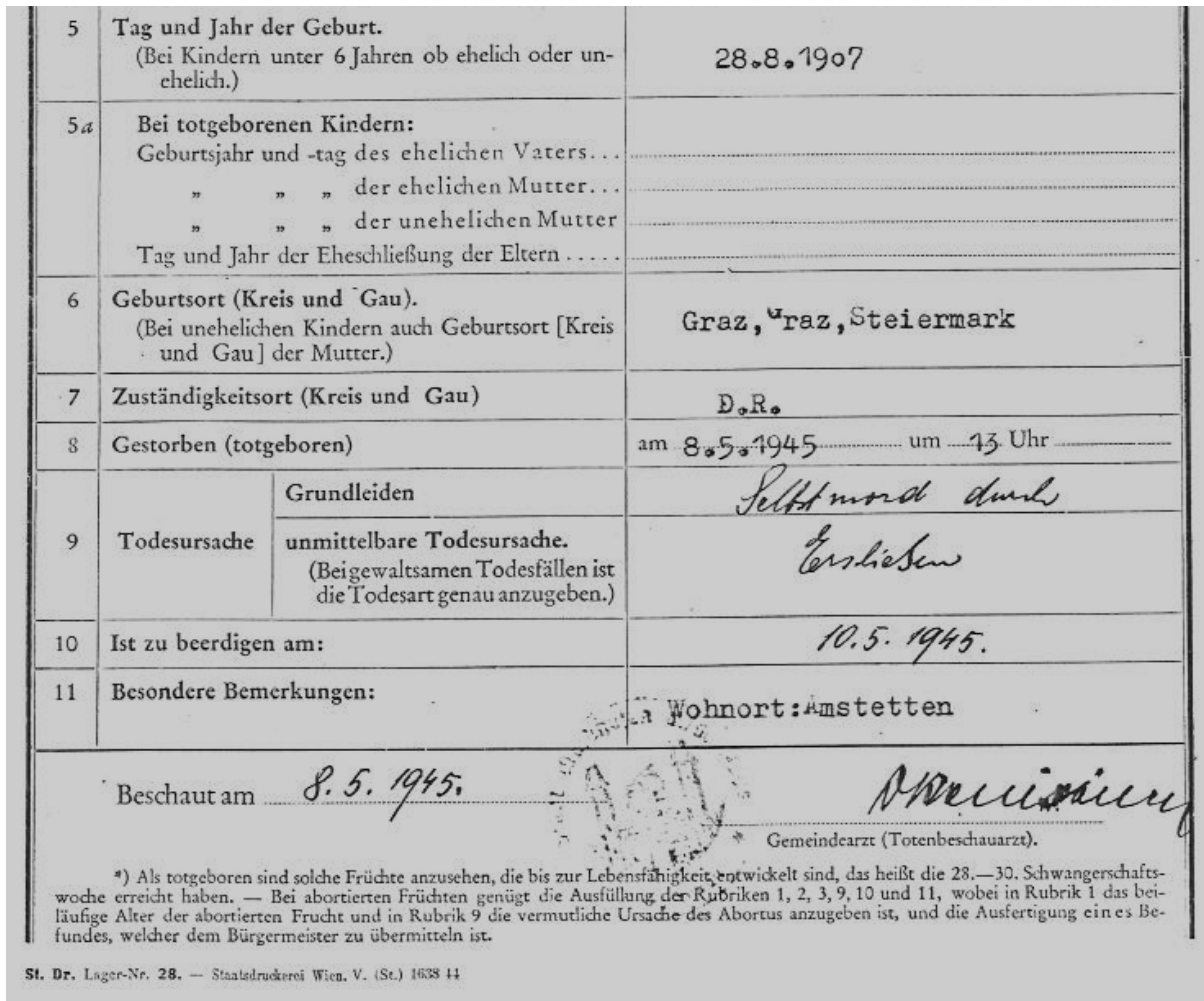 5 Tag und Jahr der Geburt.
(Bei Kindern unter 6 Jahren ob ehelich oder un-
ehelich.)
28.8.1907
5a Bei totgeborenen Kindern:
Geburtsjahr und -tag des ehelichen Vaters...
„ „ „ der ehelichen Mutter...
„ „ „ der unehelichen Mutter
Tag und Jahr der Eheschließung der Eltern .....
6 Geburtsort (Kreis und Gau).
(Bei unehelichen Kindern auch Geburtsort [Kreis
und Gau] der Mutter.)
Graz,Graz,Steiermark
7 Zuständigkeitsort (Kreis und Gau)
D.R.
8 Gestorben (totgeboren)
am 8.5.1945 um 13 Uhr
9 Todesursache
Grundleiden
Selbstmord durch
unmittelbare Todesursache.
(Bei gewaltsamen Todesfällen ist
die Todesart genau anzugeben.)
Ersließen
10 Ist zu beerdigen am:
10.5.1945.
11 Besondere Bemerkungen:
Wohnort:Amstetten
Beschaut am 8.5.1945.
Gemeindearzt (Totenbeschauarzt).
*) Als totgeboren sind solche Früchte anzusehen, die bis zur Lebensfähigkeit entwickelt sind, das heißt die 28.—30. Schwangerschafts-
woche erreicht haben. — Bei abortierten Früchten genügt die Ausfüllung der Rubriken 1, 2, 3, 9, 10 und 11, wobei in Rubrik 1 das bei-
läufige Alter der abortierten Frucht und in Rubrik 9 die vermutliche Ursache des Abortus anzugeben ist, und die Ausfertigung eines Be-
fundes, welcher dem Bürgermeister zu übermitteln ist.
St. Dr. Lager-Nr. 28. — Staatsdruckerei Wien. V. (St.) 1638 44